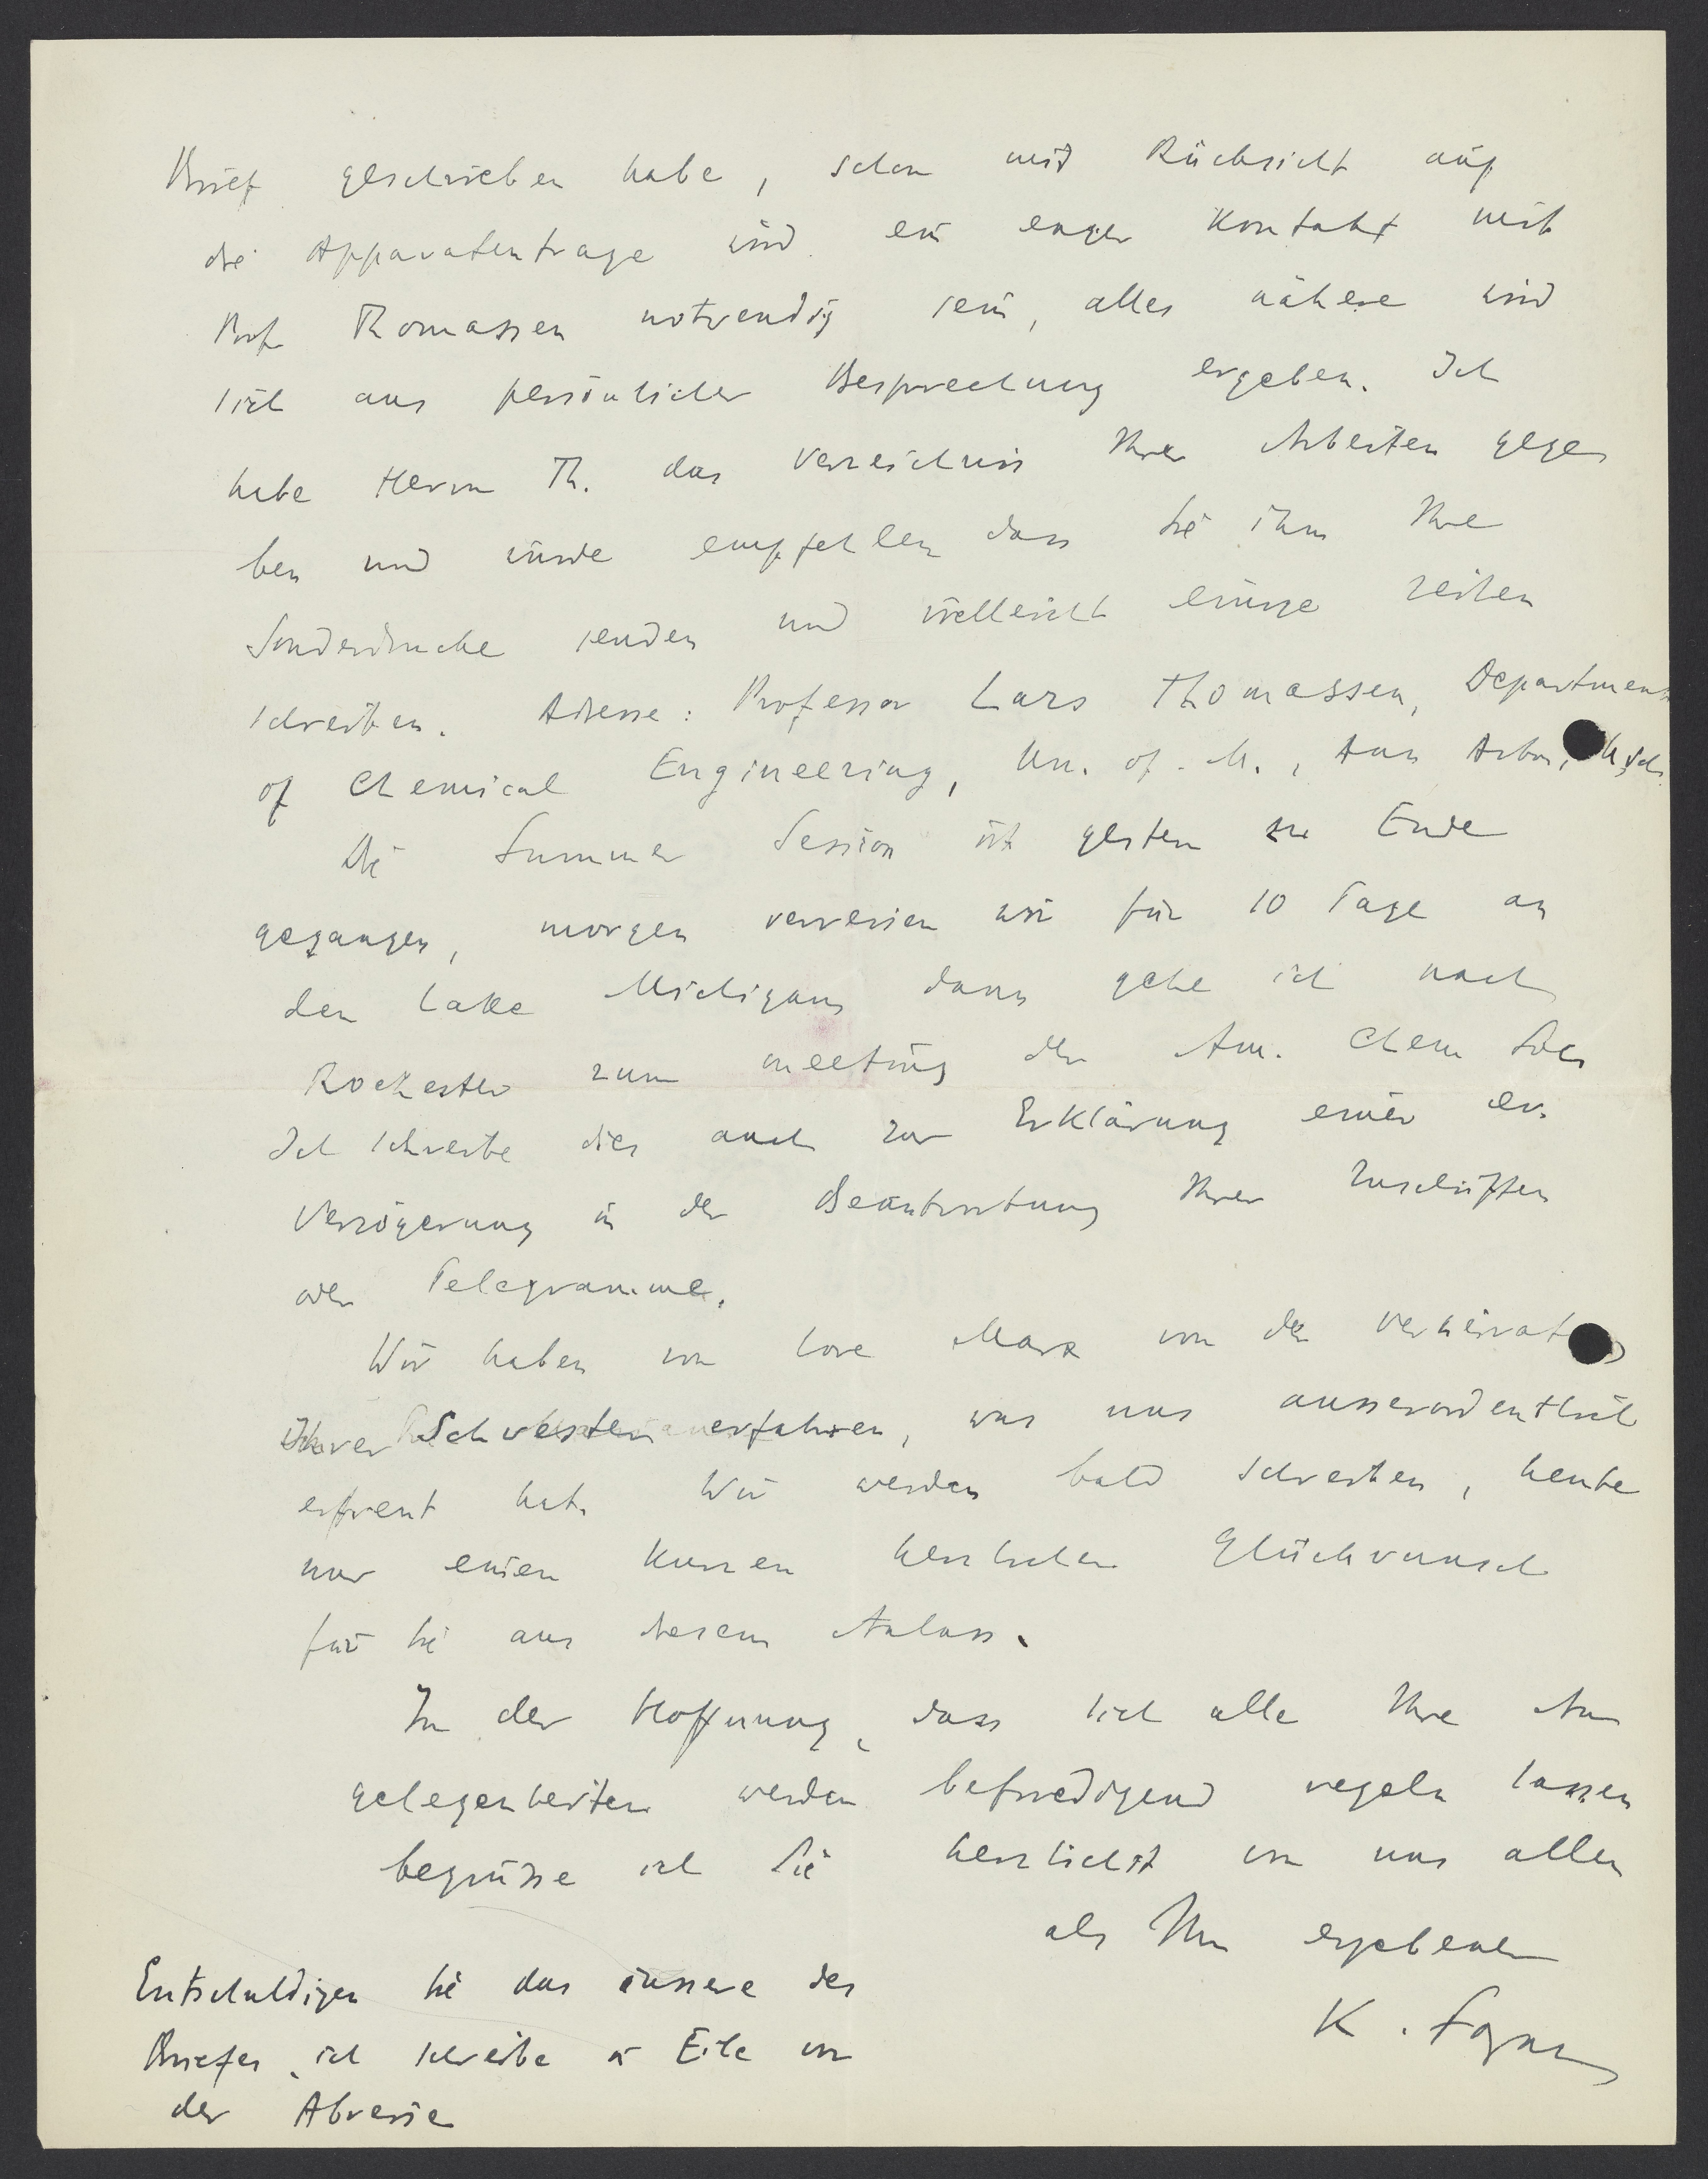 Brief geschrieben habe, schon mit Rücksicht auf
die Apparatenfrage wird ein enger Kontakt mit
Prof Thomassen notwendig sein, alles nähere wird
sich aus persönlicher Besprechung ergeben. Ich
habe Herrn Th. das Verzeichnis Ihrer Arbeiten gege
ben und würde empfehlen dass Sie ihm Ihre
Sonderdrucke senden und vielleicht einige Zeilen
schreiben. Adresse: Professor Lars Thomassen, Department
of Chemical Engineering, Un. of. M., Ann Arbor, Mich.
Die Summer Session ist gestern zu Ende
gegangen, morgen verreisen wir für 10 Tage an
den Lake Michigan, dann gehe ich nach
Rochester zum meeting der Am. Chem Soc.
Ich schreibe dies auch zur Erklärung einer ev.
Verzögerung in der Beantwortung Ihrer Zuschriften
oder Telegramme.
Wir haben von Lore Marx von der Verheirat
Ihrer Schwester erfahren, was uns ausserordentlich
erfreut hat. Wir werden bald schreiben, heute
nur einen kurzen herzlichen Glückwunsch
für Sie aus diesem Anlass.
In der Hoffnung, dass sich alle Ihre An
gelegenheiten werden befriedigend regeln lassen
begrüsse ich Sie herzlichst von uns allen
als Ihr ergebener
K. Fajans
Entschuldigen Sie das äussere des
Briefes, ich schreibe in Eile vor
der Abreise